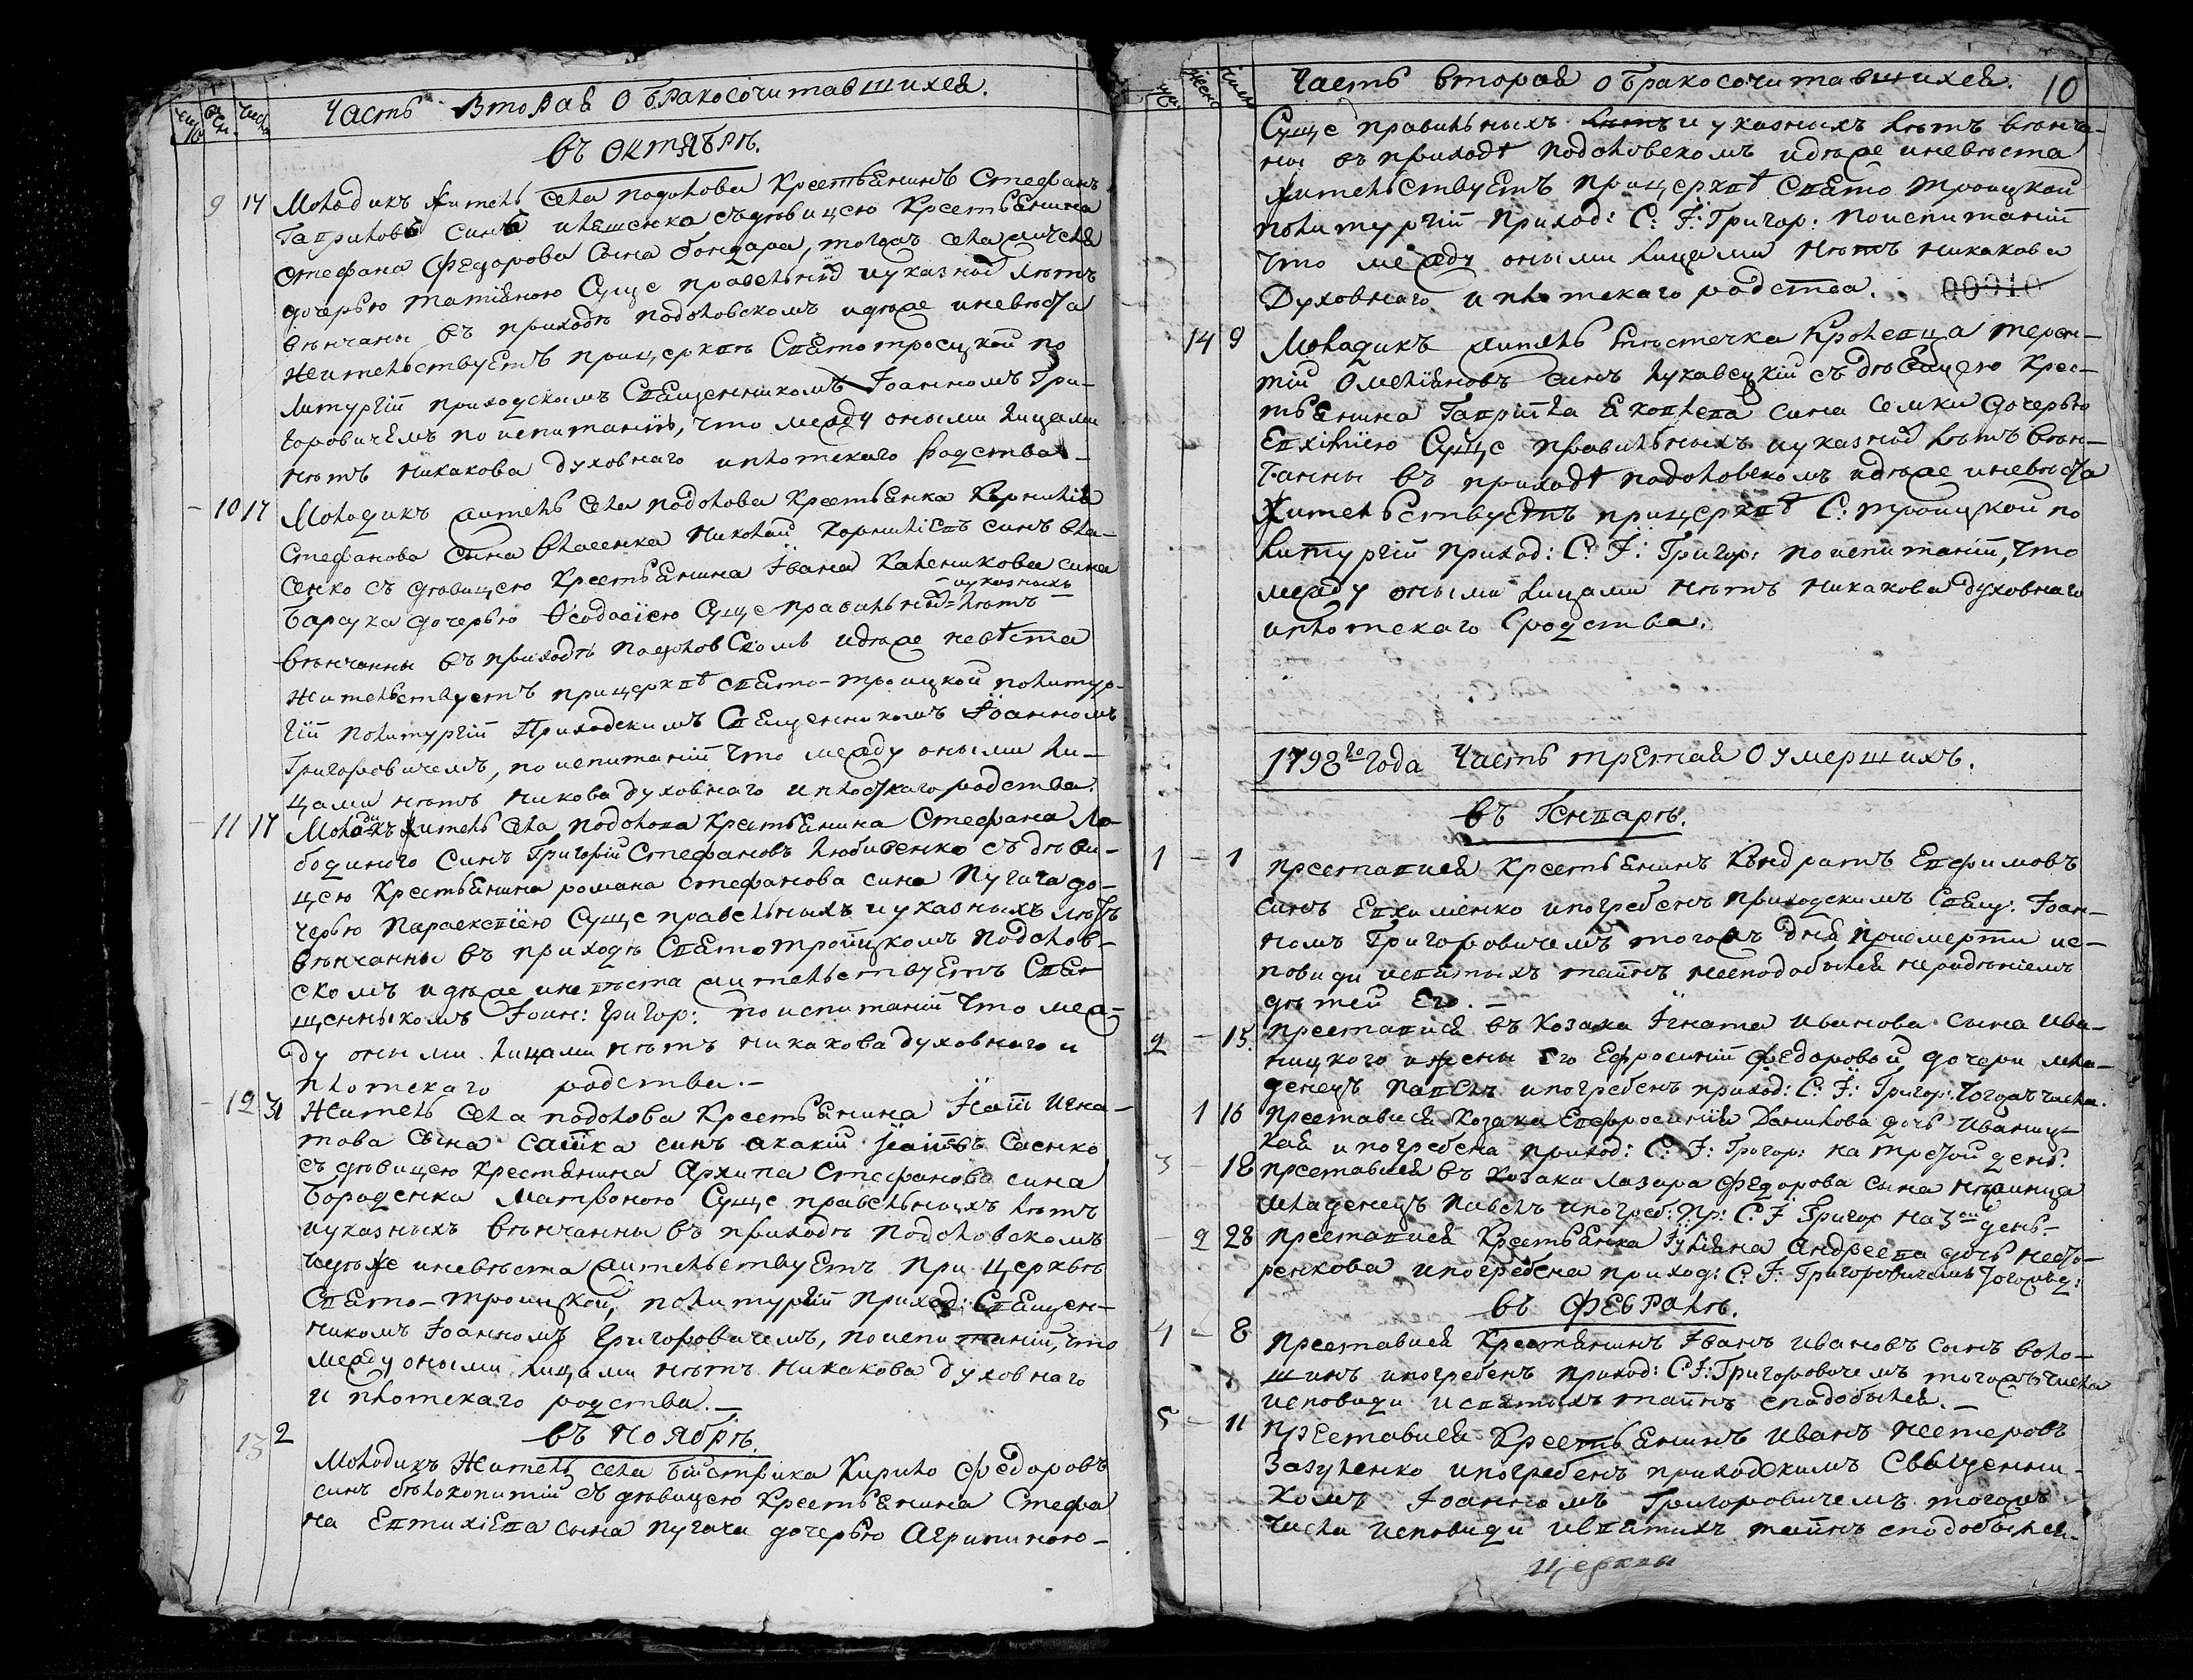 Часть Вторая О бракосочитавшихся.
въ октябрѣ.
9 14 Молодикъ житель села подолова крестьянинъ Стефанъ
Гавриловъ синъ съдѣвицею крестьянина
Стефана Федорова сына бондара, тогожъ села
дочерью татіяною Суще правельній и указній лѣтъ
вѣнчаны въ приходѣ подоловскомъ идѣже иневѣста
жительствуетъ прицерквѣ Святотроецкой по
литургіи приходскимъ Священникомъ Іоанномъ Гри-
горовичемъ по испитаніи, что между оными лицами
нѣтъ никакова духовнаго иплотскаго родства
10 17 Молодикъ житель села подолова крестьянка Корнилія
Стефанова сина власенка Николай Корниліевъ синъ вла-
сенко съ дѣвицею крестьянина Івана Каленикова сина
и указныхъ
барсука дочерью Ѳеодосіею Суще правильній лѣтъ
вѣнчанны въ приходѣ подоловскомъ идѣже невѣста
жительствуетъ прицерквѣ святотроицкой политур-
гіи политургіи Приходскимъ Священникомъ Іоанномъ
Григоровичемъ, по испитаніи что между оными ли-
цами нѣтъ никова духовнаго иплотскаго родства.
11 17 Молодикъ житель села подолова крестьянина Стефана Ло-
бодиного синъ Григорій Стефановъ любивенко съ дѣви-
цею крестьянина романа стефанова сина Пугача до-
черью Параскевіею Суще правельныхъ и указныхъ лѣтъ
вѣнчанны въ приходѣ Святотройцкомъ подолов-
скомъ идѣже иневѣста жительствуетъ Свя-
щенныкомъ Іоан: Григор: по испитаніи что меж-
ду оными лицами нѣтъ никакова духовнаго и
плотскаго родства.
12 31 Житель села подолова крестьянина Ісаіи игна-
това сына сашка синъ акакій Ісаіевъ саенко
съ дѣвицею крестянина Архипа Стефанова сина
бороденка Матроною Суще правельныхъ лѣтъ
и указныхъ вѣнчанны въ приходѣ Подоловскомъ
идѣже иневѣста жительствуетъ При церквѣ
Свято-троицкой, политургіи приход: Священ-
никомъ Іоанномъ Григоровичемъ, по испитаніи, что
между оными лицами нѣтъ никакова духовнаго
и плотскаго родства.
въ Ноябрѣ.
13 2 Молодикъ житель села бистрика Кирило федоровъ
синъ бѣлокопитій съ дѣвицею крестьянина Стефа
на Евтихіева сына пугача дочерью Агрипиною
Часть вторая О бракосочитавшихся. 10
Суще правильныхъ и указныхъ лѣтъ вѣнча-
ны въ приходѣ подоловскомъ идѣже иневѣста
жительствуетъ прицерквѣ Свято троицкой
политургіи приход: С: І: Григор: по испитаніи
что между оными лицами нѣтъ никакова
Духовнаго и плотскаго родства. 00910
14 9 Молодикъ житель мѣстечка Кролевца терен-
тій Омеліяновъ синъ лукавецкій съ дѣвицею крес-
тьянина Гавріила Яковлева сина семки дочерью
Евхиміею Суще правильныхъ и указній лѣтъ вѣн-
чанны въ приходѣ подоловскомъ идѣже иневѣста
жительствуетъ прицерквѣ С: троицкой по
литургіи приход: С: І: Григор: по испитаніи, что
между оными лицами нѣтъ никакова духовнаго
иплотскаго сродства.
1798го года Часть третая О умершихъ.
въ Генварѣ.
1 – 1 преставися крестьянинъ Кондратъ Евфимовъ
синъ Евхименко ипогребенъ приходскимъ Свящ: Іоан-
номъ Григоровичемъ тогожъ дня присмерти ис-
повиди исвятыхъ тайнъ несподобыся нерадѣніемъ
дѣтей его.
2 – 15. преставися въ козака Ігната иванова сына ива-
ницкого ижены его Ефросиніи федоровой дочери мла-
денецъ Павелъ ипогребенъ приход: С: І: Григор: тогожъ числа.
1 16 преставися козака Евфросинія Данилова дочь иваниц-
кая и погребена приход: С: І: Григор: на третой день.
3 – 18 преставися въ козака Лазара Федорова сына нѣжинца
младенецъ Павелъ ипогреб: Пр: С: І: Григор на 3ой день.
– 2 28 преставися крестьянка Іуліяна Андреева дочь недо-
ренкова ипогребена приход: С: І: Григоровичемъ
въ Февралѣ.
4 – 8 преставися крестянинъ Іванъ ивановъ сынъ воло-
шинъ ипогребенъ приход: С: І: Григоровичемъ тогожъ числа
исповиди исвятыхъ тайнъ сподобыся.
5 – 11 преставися крестьянинъ иванъ нестеровъ
Зазуленко ипогребенъ приходскимъ Священни-
комъ Іоанномъ Григоровичемъ тогожъ
числа исповиди исвятихъ тайнъ сподобыся.
Церкви